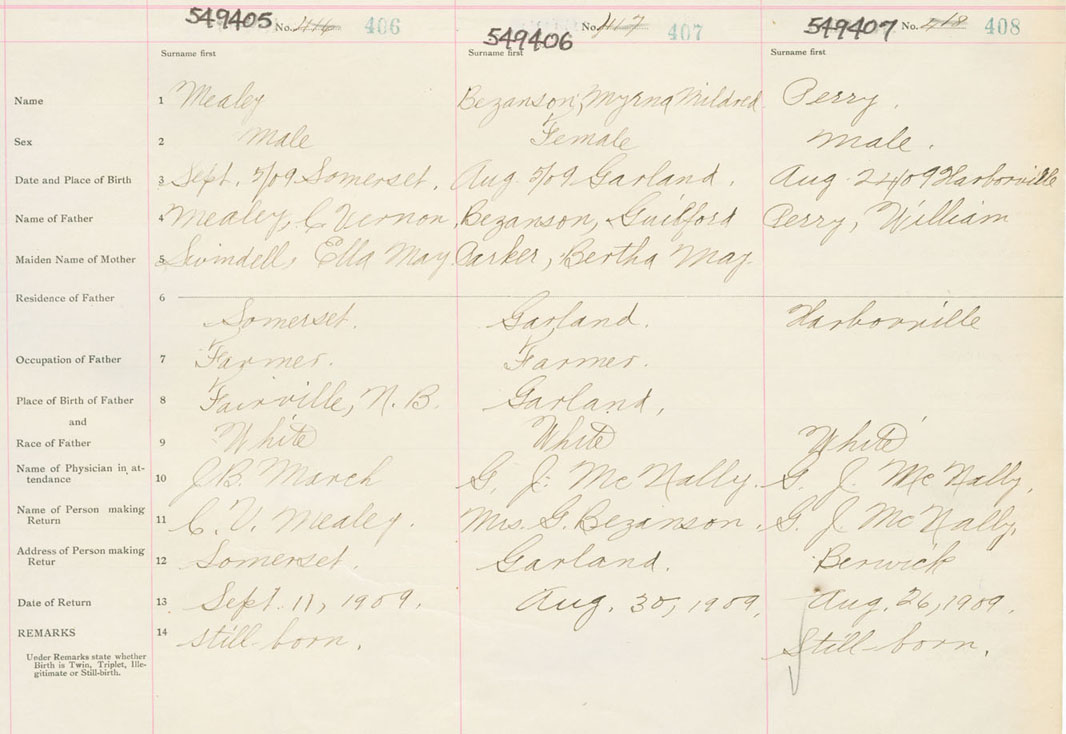 549405 No. 416 406 549406 No. 417 407 549407 No. 418 408
Surname first Surname first Surname first
Name 1 Mealey Bezanson, Myrna Mildred Perry.
Sex 2 Male Female Male.
Date and Place of Birth 3 Sept. 5/09 Somerset. Aug. 5/09 Garland. Aug. 24/09 Harborville
Name of Father 4 Mealey, C Vernon. Bezanson, Guilford Perry, William
Maiden Name of Mother 5 Swindell, Ella May Parker, Bertha May.
Residence of Father 6 Somerset. Garland. Harborville
Occupation of Father 7 Farmer. Farmer.
Place of Birth of Father 8 Fairville, N.B. Garland,
and
Race of Father 9 White White White
Name of Physician in at-
tendance 10 J.B. March G. J. McNally. G. J. McNally.
Name of Person making
Return 11 C. V. Mealey. Mrs. G. Bezanson. G. J. McNally.
Address of Person making
Retur 12 Somerset. Garland. Berwick
Date of Return 13 Sept. 11, 1909. Aug. 30, 1909. Aug. 26, 1909.
REMARKS 14 still-born. Still-born.
Under Remarks state whether
Birth is Twin, Triplet, Ille-
gitimate or Still-birth.